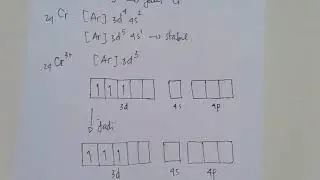 → jadi Cr
24 Cr [Ar] 3d⁴ 4s²
[Ar] 3d⁵ 4s¹ → stabil
24 Cr³⁺ [Ar] 3d³
1 1 1
3d 4s 4p
jadi
1 1 1
3d 4s 4p